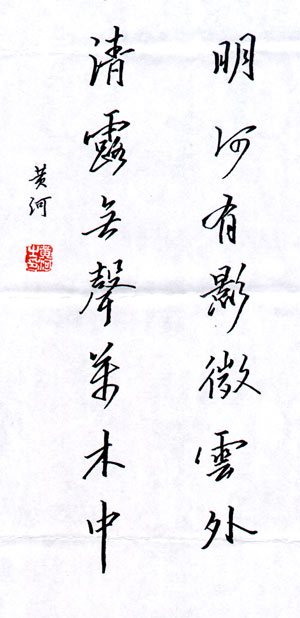 明河有影微雲外
清露无聲萬木中
黄河